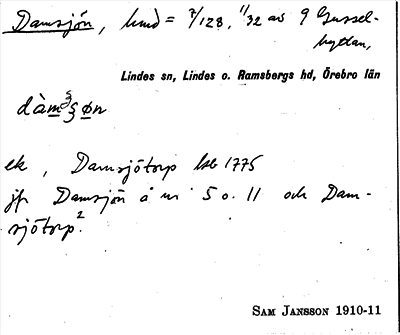 Damsjön, hmd = 7/128, 11/32 av 9 Gussel-
hyttan,
Lindes sn, Lindes o. Ramsbergs hd, Örebro län
dàmʒøn
ek, Damsjötorp lht 1775
jfr Damsjön å nr 5 o. 11 och Dam-
sjötorp².
SAM JANSSON 1910-11